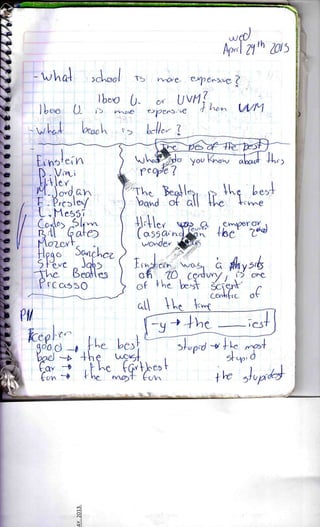 wed
April 29th 2015
- What school is more expensive?
Iboo U. or UVM?
Iboo U. is more expensive then UVM
- What beach is better?
The best of the best
Einstein
D. Vinci
Hitler
M. Jordan
E. Presley
L. Messi
Carlos Slim
Bill Gates
Mozart
Hugo Sanchez
Steve Jobs
The Beatles
Picasso
What do you know about this
people?
The Beatles is the best
band of all the time
Hitler was a emperor
in the 2nd
wonder
Einstein was a
of 20 century, is one
of the best scient
centific of
all the time
-y → the ___iest
good → the best
bad → the worst
far → the farthest
fun → the most fun
stupid → the most
stupid
the stupidest